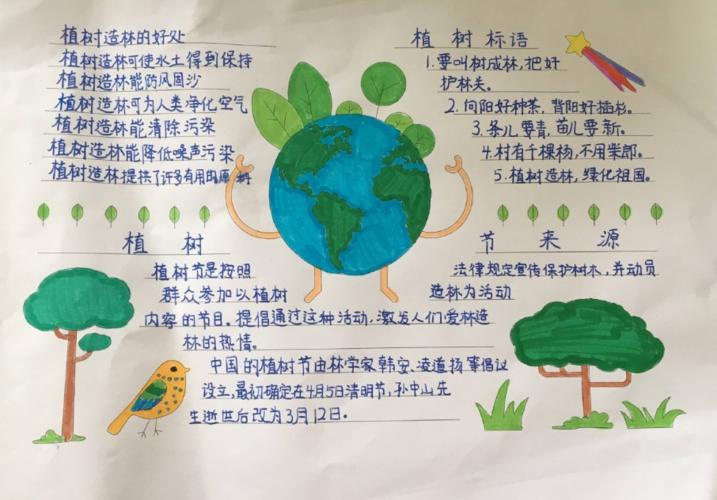 植树造林的好处
植树造林可使水土得到保持
植树造林能防风固沙
植树造林可为人类净化空气
植树造林能清除污染
植树造林能降低噪声污染
植树造林提供了许多有用的原材
植树标语
1.要叫树成林,把好
护林夫。
2.向阳好种茶,背阳好插杉。
3.条儿要青,苗儿要新。
4.村有千棵杨,不用柴郎。
5.植树造林,绿化祖国。
植树 节来源
植树节是按照 法律规定宣传保护树木,并动员
群众参加以植树 造林为活动
内容的节目。提倡通过这种活动,激发人们爱林造
林的热情。
中国的植树节由林学家韩安、凌道扬等倡议
设立,最初确定在4月5日清明节,孙中山先
生逝世后改为3月12日。